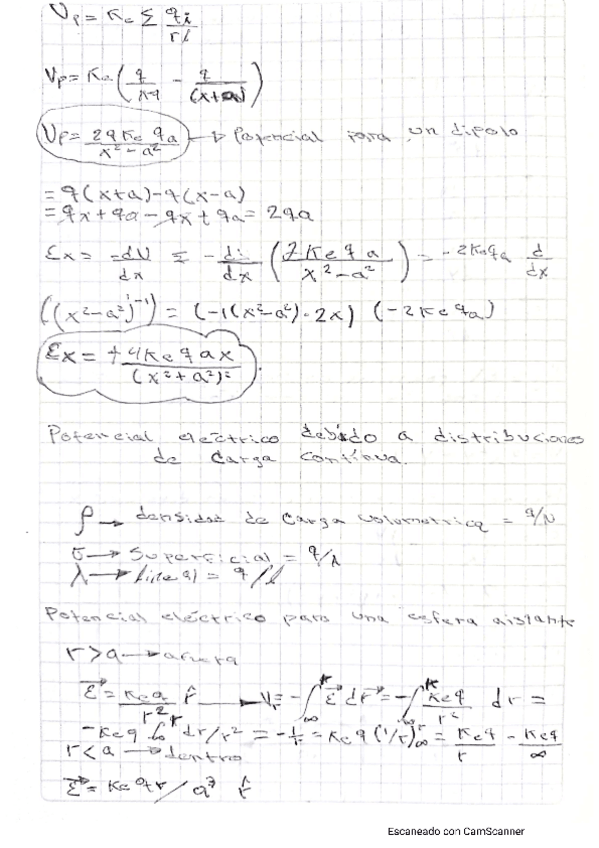 Vp = Ke Σ qi/ri
Vp = Ke (q/x-a - q/(x+a))
Vp = 2q Ke qa / x² - a² → Potencial para un dipolo
= q(x+a) - q(x-a)
= qx + qa - qx + qa = 2qa
Ex = -dV/dx = -d/dx (2Ke q a / x² - a²) = -2Ke qa d/dx
((x²-a²)⁻¹) = (-1(x²-a²)·2x) (-2Ke qa)
Ex = +4Ke q a x / (x²+a²)²
Potencial eléctrico debido a distribuciones
de carga contínua.
ρ → densidad de carga volometrica = q/V
σ → Superficial = q/A
λ → lineal = q/l
Potencial eléctrico para una esfera aislante
r > a → afuera
E = Ke q / r² r̂ → Vr = -∫∞^r E dr = -∫∞^r Ke q / r² dr =
-Ke q ∫∞^r dr/r² = -1/r = Ke q (1/r)∞^r = Ke q / r - Ke q / ∞
r < a → dentro
E = Ke q r / a³ r̂
Escaneado con CamScanner